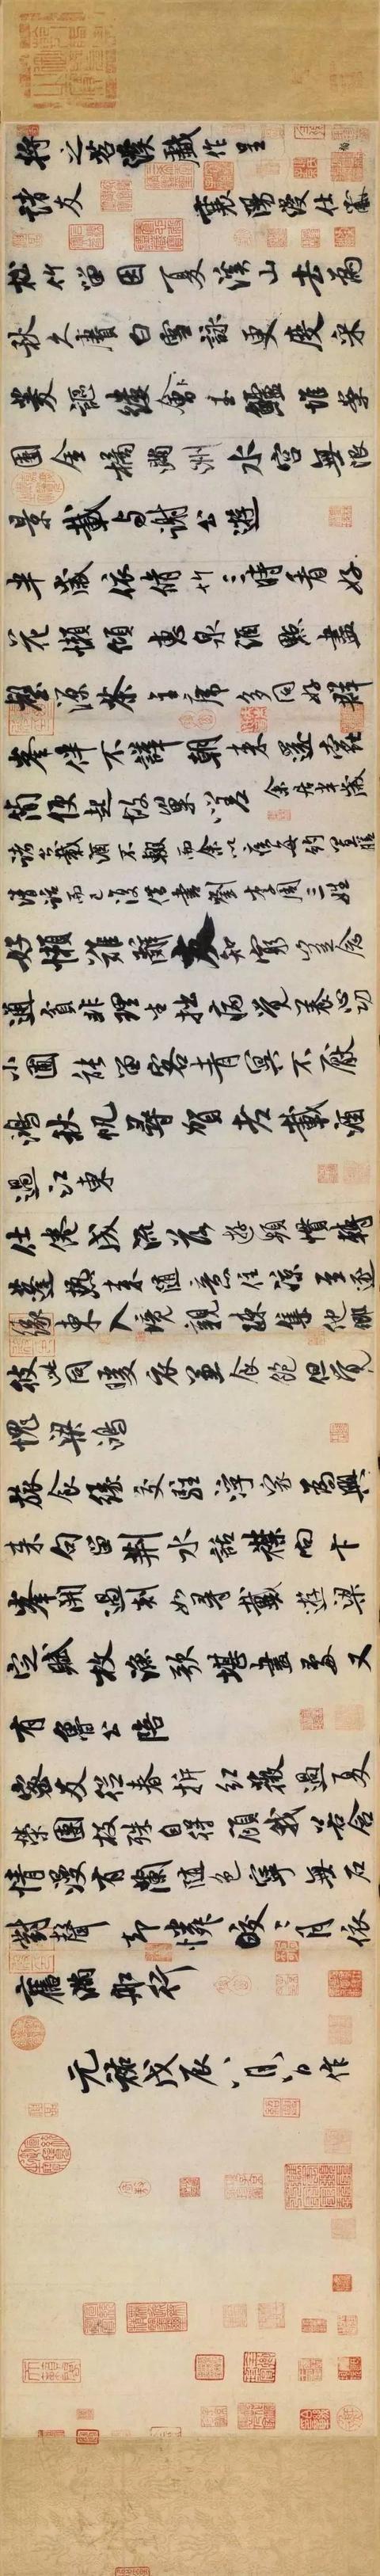 將之苕溪戲作呈
諸友
襄陽漫仕黻
松竹留因夏溪山去為
秋久賡白雪詠更度采
菱謳縷會玉鱸堆案
團金橘滿洲水宮無限
景載與謝公遊
半歲依脩竹三時看好
花懶傾惠泉酒點盡
壑源茶主席多同好群
峯伴不譁朝來還蠹
簡便起故巢嗟
余居半歲
諸公載酒不輟而余以疾每約置膳
清話而已復借書劉李周三姓
好懶難辭友知窮豈念
通貧非理生拙病覺養心功
小圃能留客青冥不厭
鴻秋帆尋賀老載酒
過江東
仕倦成流落遊頻慣轉
蓬熱來隨意住涼至逐
緣東入境親疎集他鄉
彼此同暖衣兼食飽但覺
愧梁鴻
旅食緣交駐浮家為興
來句留荊水話襟向卞
峯開過剡如尋戴遊梁
定賦枚漁歌堪畫處又
有魯公陪
密友從春拆紅薇過夏
榮團枝殊自得顧我若含
情漫有蘭隨色寧無石
對聲却憐皎々月依
舊滿舡行
元祐戊辰八月八日作